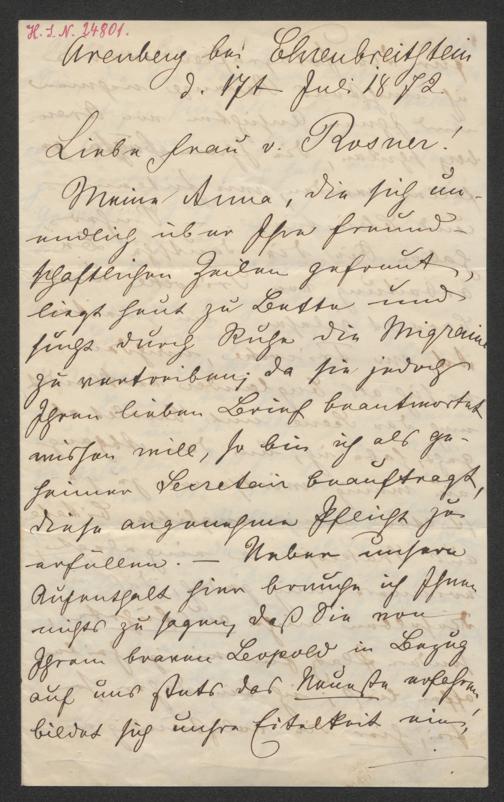 H. I. N. 24801.
Arenberg bei Ehrenbreithstein
d. 17t Juli 1872.
Liebe Frau v. Rosner!
Meine Anna, die sich un-
endlich über Ihre freund-
schaftlichen Zeilen gefreut,
liegt heut zu Bette und
sucht durch Ruhe die Migraine
zu vertreiben; da sie jedoch
Ihren lieben Brief beantwortet
wissen will, so bin ich als ge-
heimer Secretair beauftragt,
diese angenehme Pflicht zu
erfüllen. — Ueber unsern
Aufenthalt hier brauche ich Ihnen
nichts zu sagen, daß Sie von
Ihrem braven Leopold in Bezug
auf uns stets das Neueste erfahren,
bildet sich unsre Eitelkeit ein,